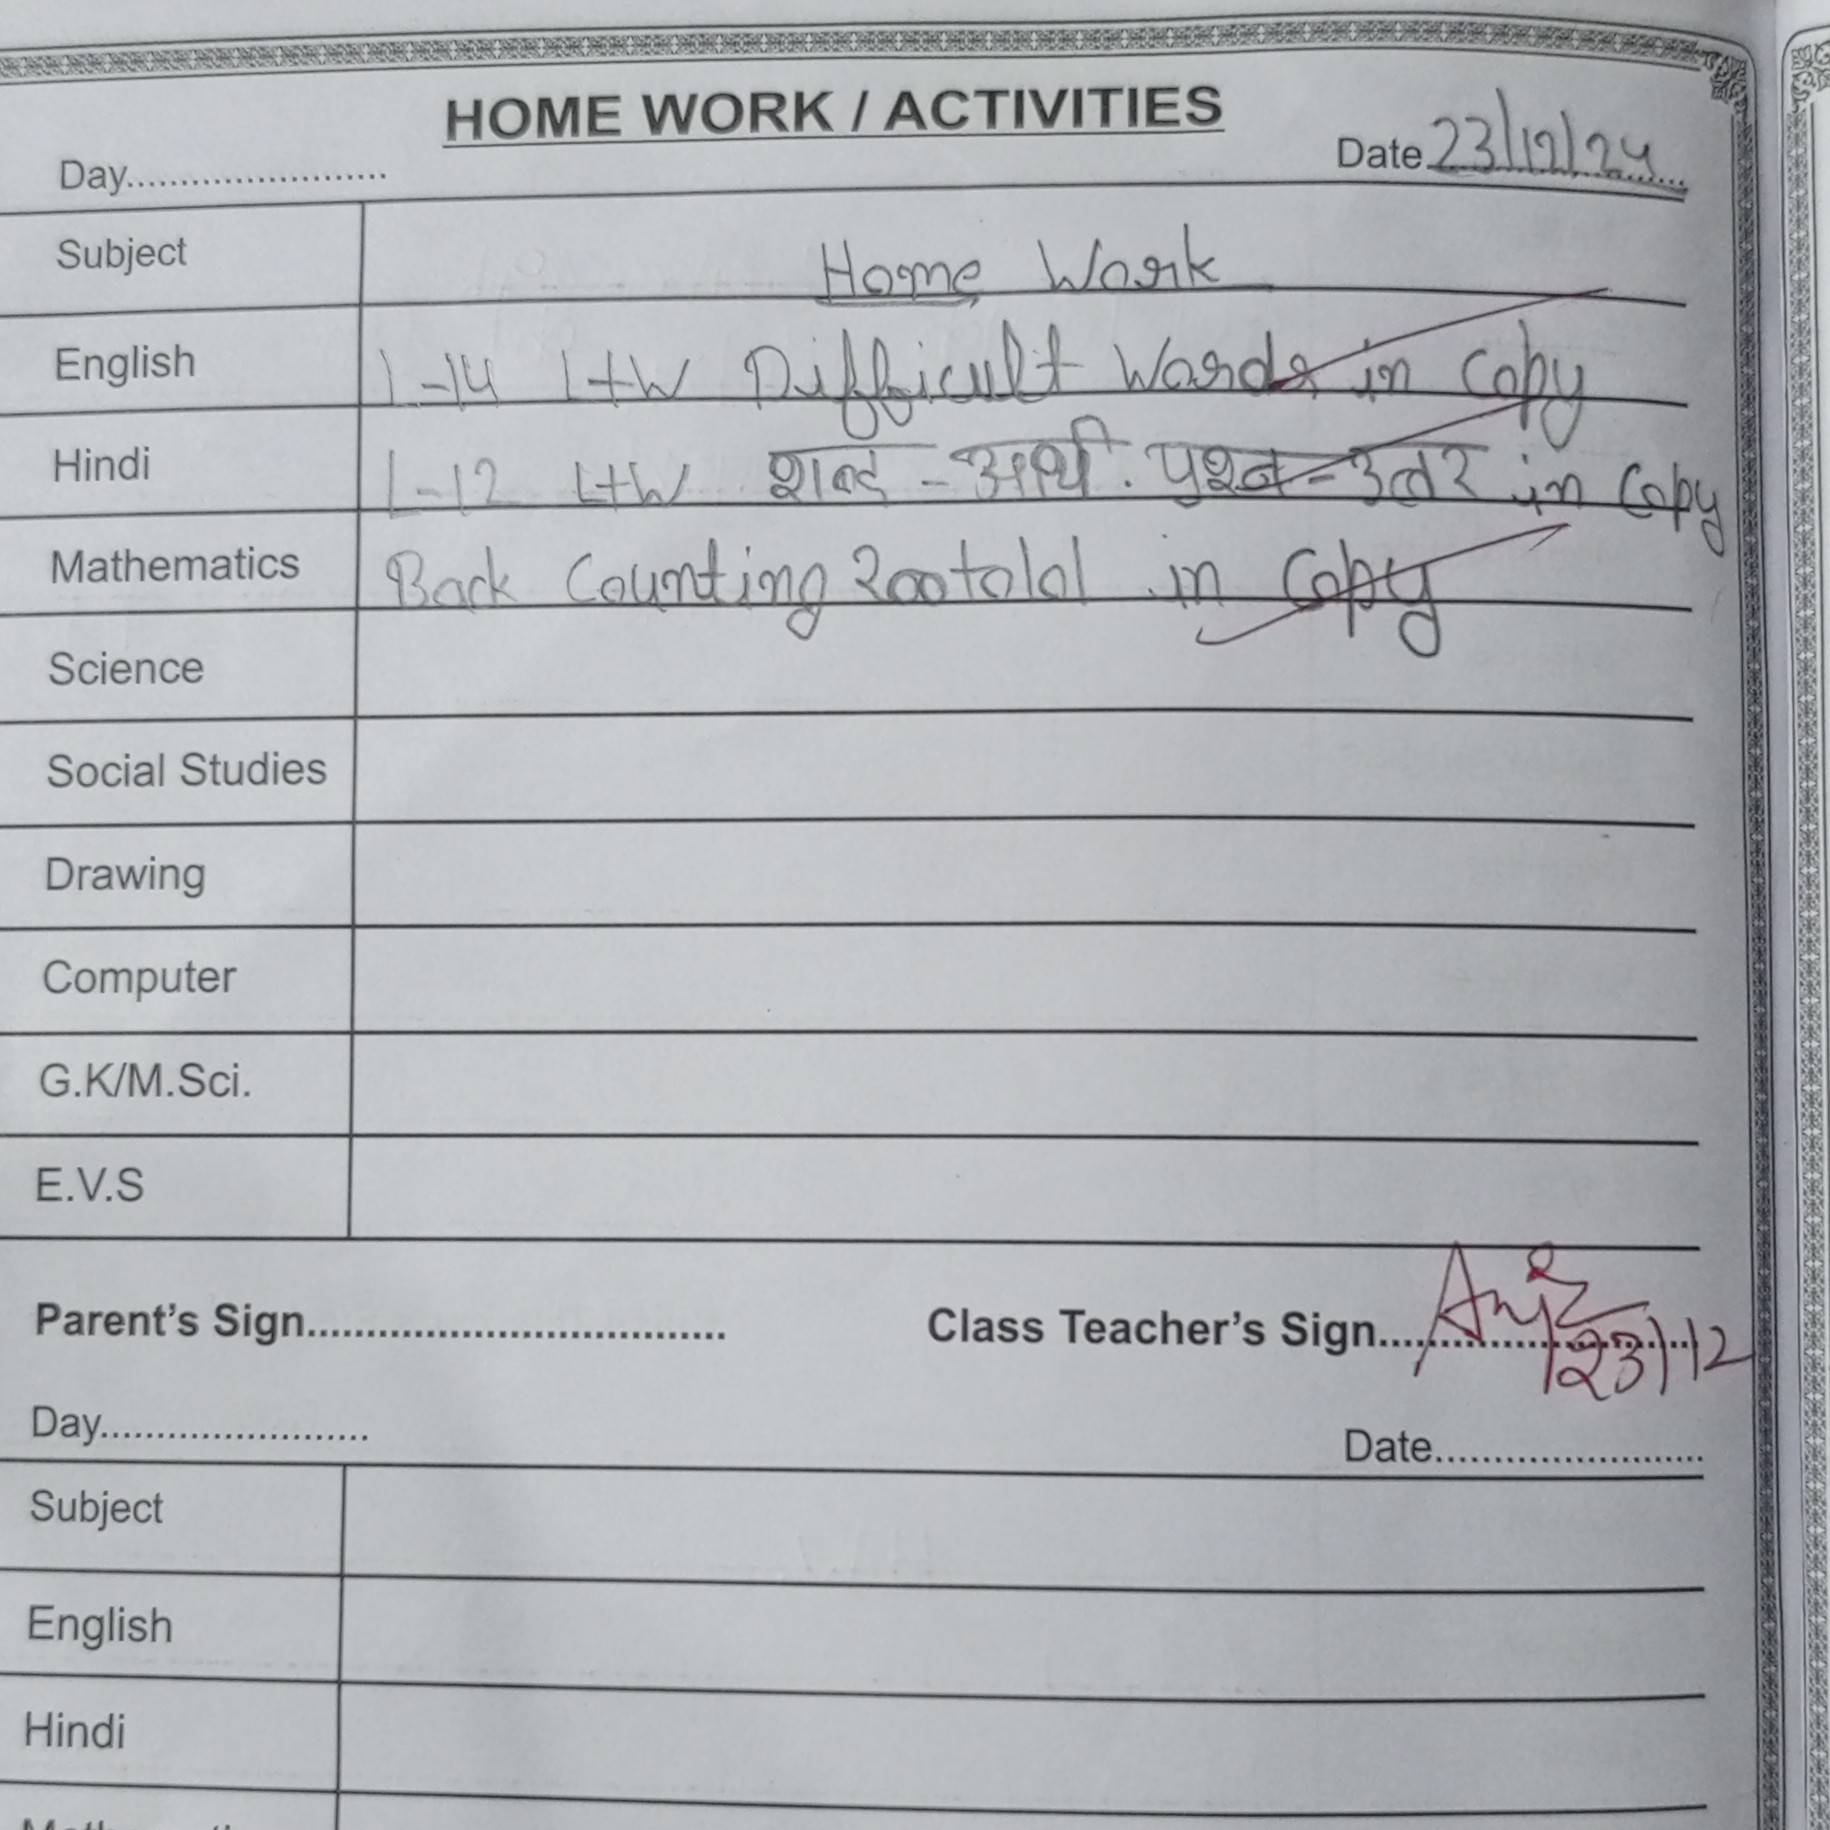 HOME WORK / ACTIVITIES
Day........................ Date 23/12/24
Subject Home Work
English L-14 L+W Difficult Words in Copy
Hindi L-12 L+W शब्द - अर्थ . प्रश्न - उत्तर in Copy
Mathematics Back Counting 200 to 101 in Copy
Science
Social Studies
Drawing
Computer
G.K/M.Sci.
E.V.S
Parent's Sign.................................... Class Teacher's Sign........................... 23/12
Day........................ Date........................
Subject
English
Hindi